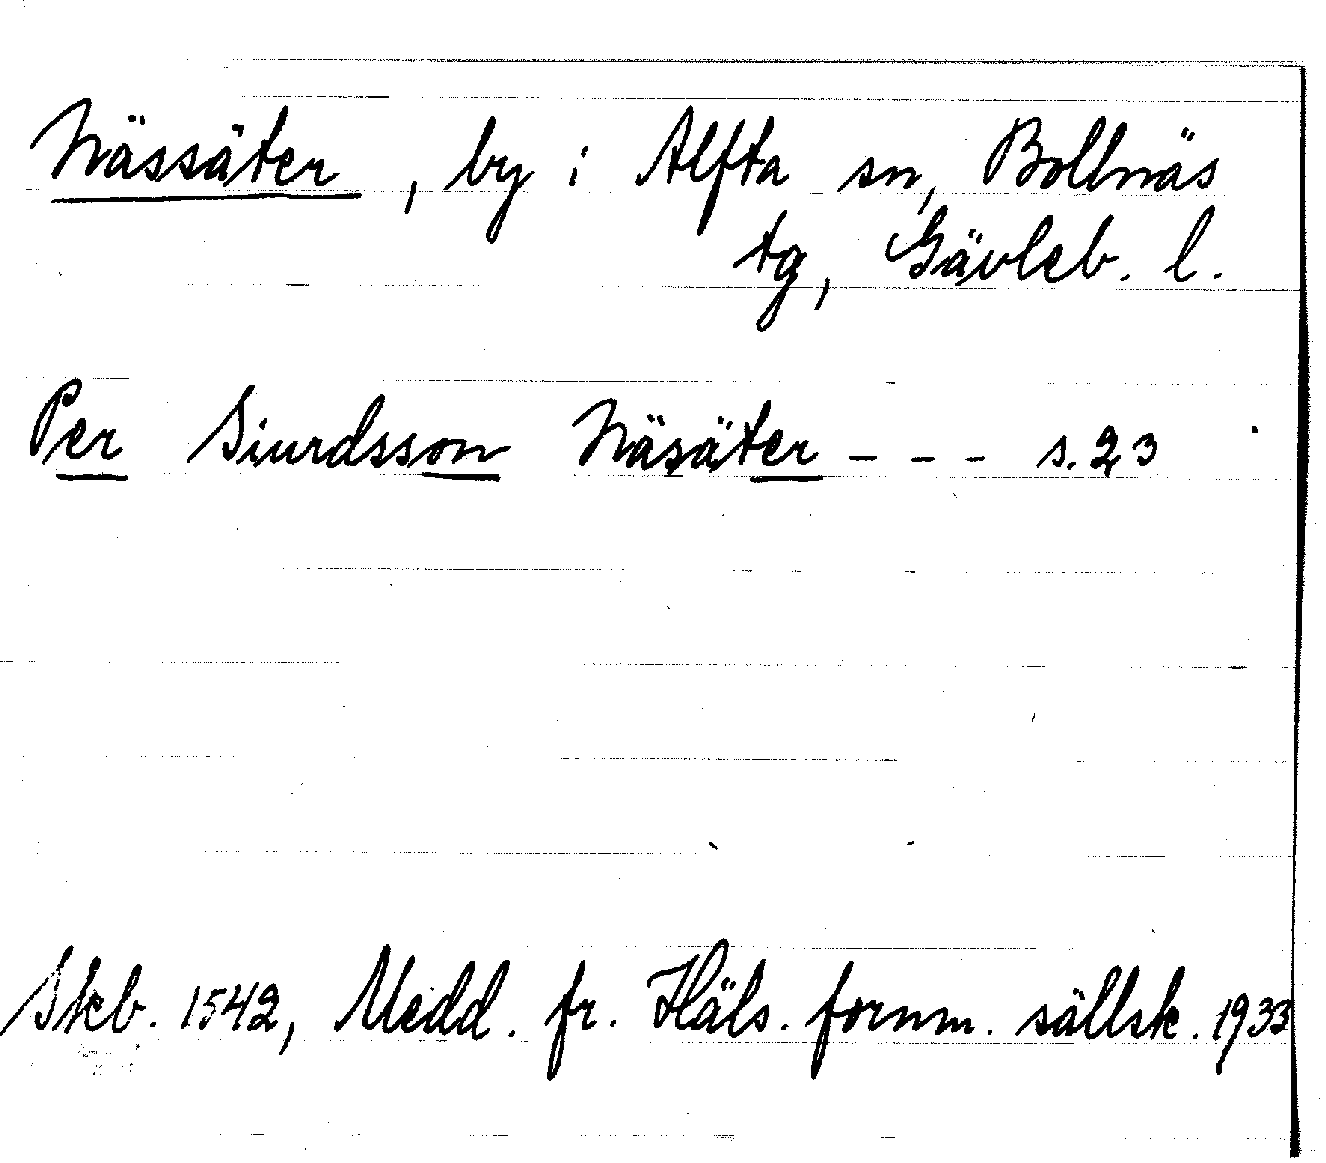 Nässäter, by i Alfta sn, Bollnäs
tg, Gävleb. l.
Per Siurdsson Näsäter - - - s. 23
Skb. 1542, Medd. fr. Häls. fornm. sällsk. 1933